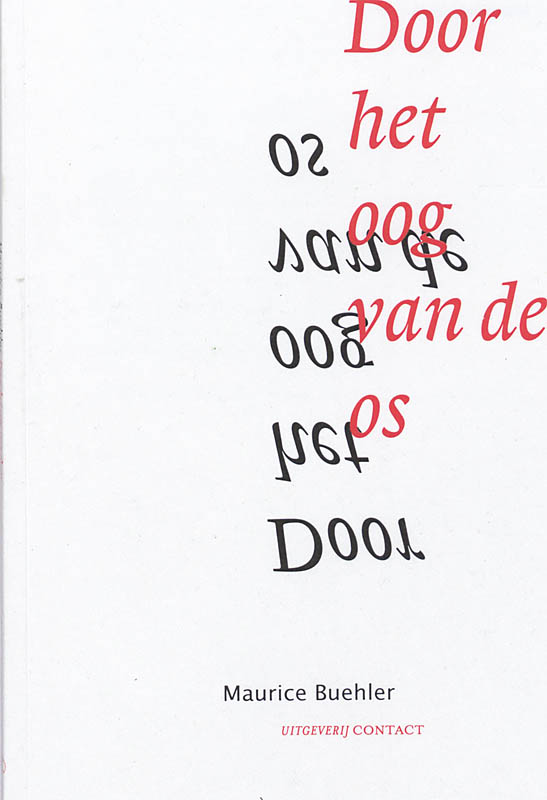 Door
het
oog
van de
os
os
van de
oog
het
Door
Maurice Buehler
UITGEVERIJ CONTACT